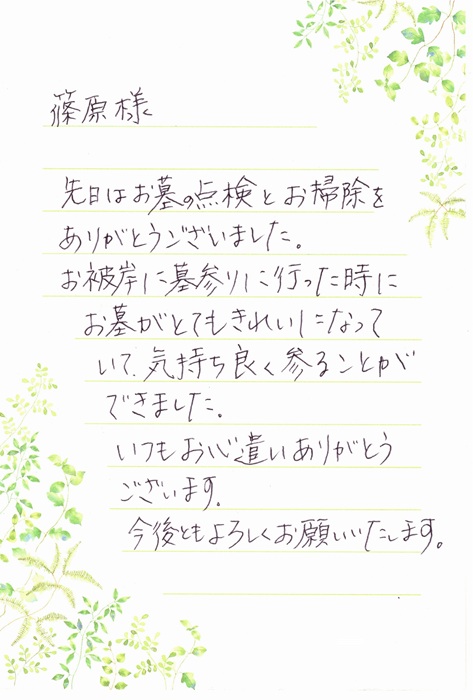 篠原様
先日はお墓の点検とお掃除を
ありがとうございました。
お被岸に墓参りに行った時に
お墓がとてもきれいになって
いて、気持ち良く参ることが
できました。
いつもお心遣いありがとう
ございます。
今後ともよろしくお願いいたします。